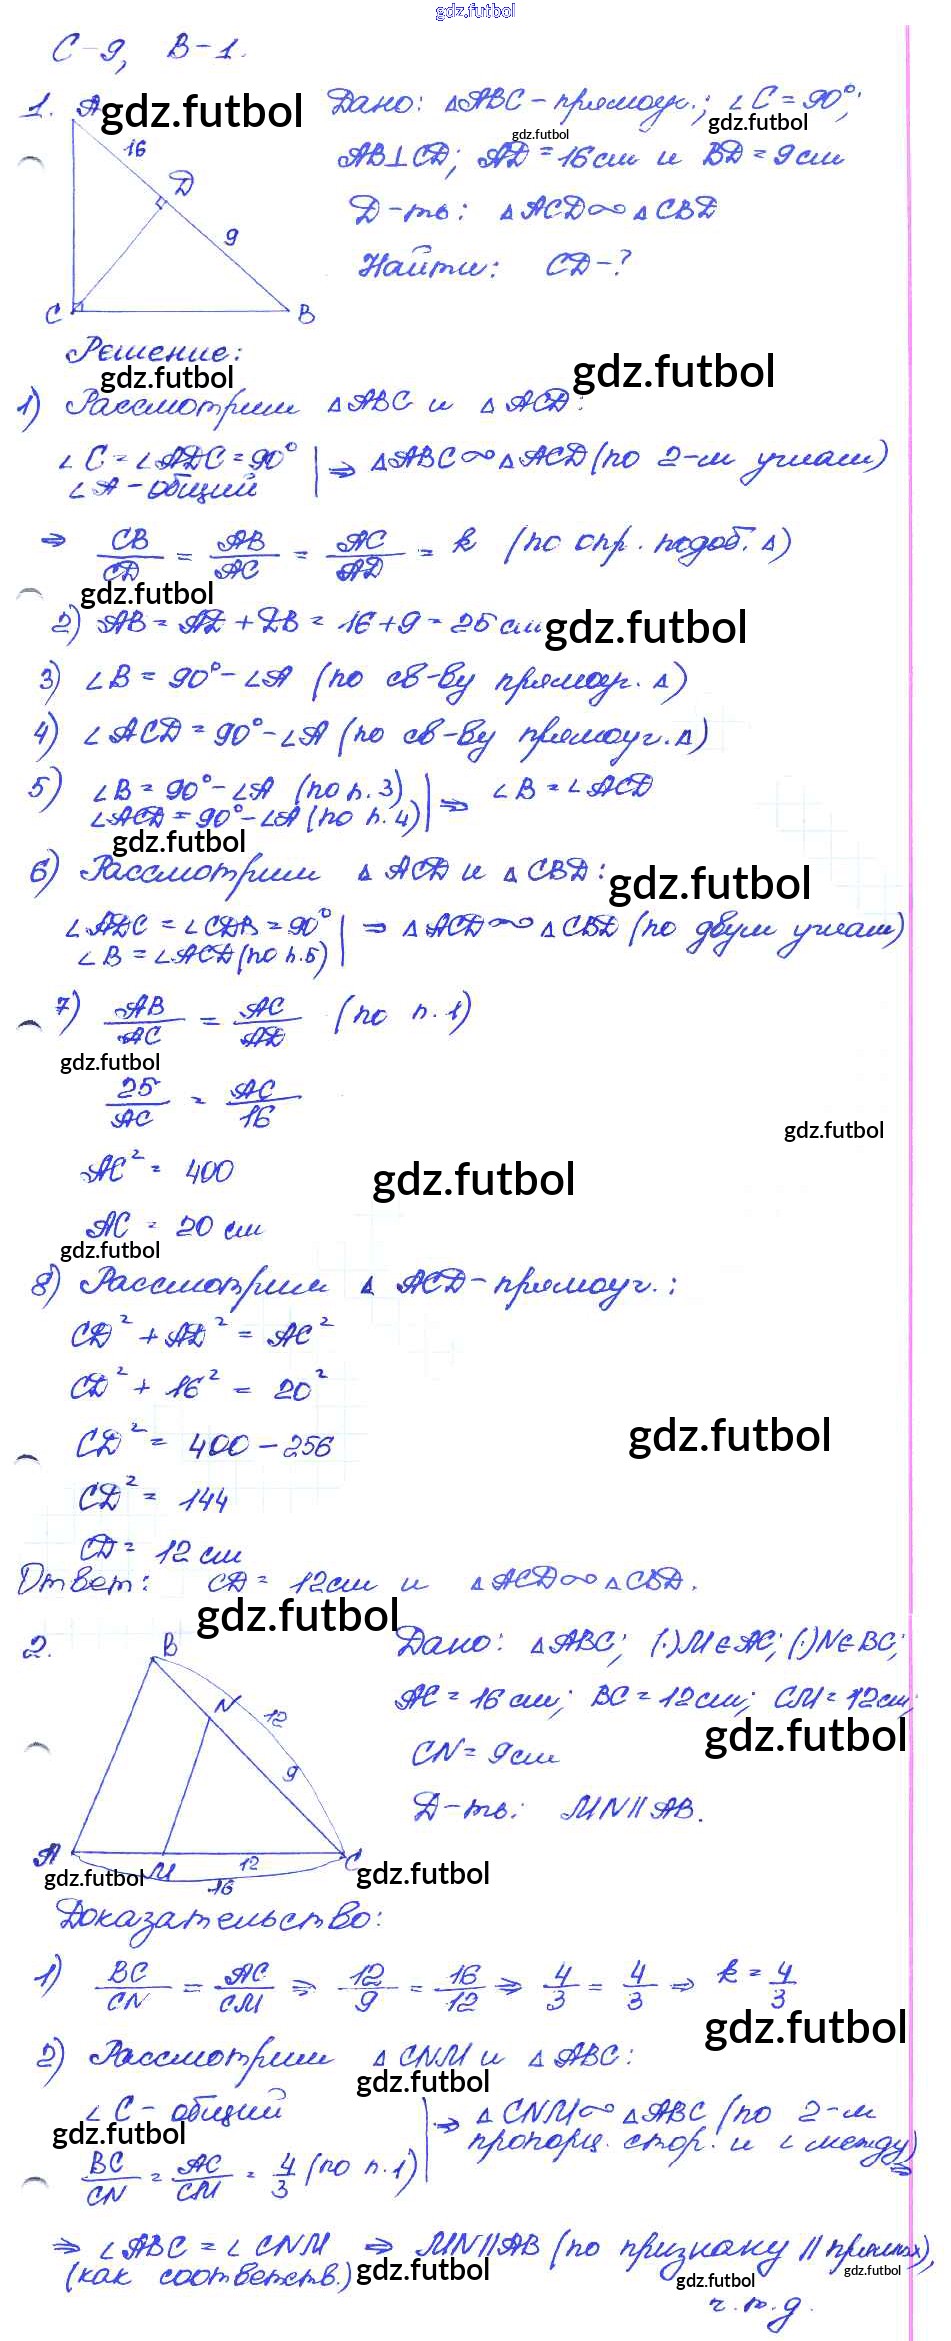 gdz.futbol
С-9, В-1.
1. A gdz.futbol Дано: △ABC - прямоуг.; ∠C = 90°;
gdz.futbol
gdz.futbol
16
AB⊥CD; AD = 16см и BD = 9см
D
Д-ть: △ACD∞△CBD
9
Найти: CD-?
C B
Решение:
gdz.futbol gdz.futbol
1) Рассмотрим △ABC и △ACD:
∠C = ∠ADC = 90° | ⇒ △ABC∞△ACD (по 2-м углам)
∠A - общий
⇒ CB/CD = AB/AC = AC/AD = k (по опр. подоб. △)
gdz.futbol
2) AB = AD + DB = 16+9 = 25 см
gdz.futbol
3) ∠B = 90° - ∠A (по св-ву прямоуг. △)
4) ∠ACD = 90° - ∠A (по св-ву прямоуг. △)
5) ∠B = 90° - ∠A (по п. 3) | ⇒ ∠B = ∠ACD
∠ACD = 90° - ∠A (по п. 4)
gdz.futbol
6) Рассмотрим △ACD и △CBD:
gdz.futbol
∠ADC = ∠CDB = 90° | ⇒ △ACD∞△CBD (по двум углам)
∠B = ∠ACD (по п.5)
7) AB/AC = AC/AD (по п. 1)
gdz.futbol
25/AC = AC/16
gdz.futbol
AC² = 400
gdz.futbol
AC = 20 см
gdz.futbol
8) Рассмотрим △ ACD - прямоуг.:
CD² + AD² = AC²
CD² + 16² = 20²
CD² = 400 - 256
gdz.futbol
CD² = 144
CD = 12 см
Ответ: CD = 12см и △ACD∞△CBD.
gdz.futbol
2. B Дано: △ABC; (·)M∈AC; (·)N∈BC;
N 12
AC = 16 см; BC = 12см; CM = 12см;
gdz.futbol
9
CN = 9см
Д-ть: MN∥AB.
A M 12 C
gdz.futbol gdz.futbol
16
Доказательство:
1) BC/CN = AC/CM ⇒ 12/9 = 16/12 ⇒ 4/3 = 4/3 ⇒ k = 4/3
gdz.futbol
2) Рассмотрим △CNM и △ABC:
gdz.futbol
∠C - общий | ⇒ △CNM∞△ABC (по 2-м
gdz.futbol
пропорц. стор. и ∠ между)
BC/CN = AC/CM = 4/3 (по п.1) ⇒
⇒ ∠ABC = ∠CNM ⇒ MN∥AB (по признаку ∥ прямых),
(как соответств.)
gdz.futbol
gdz.futbol
gdz.futbol
ч.т.д.